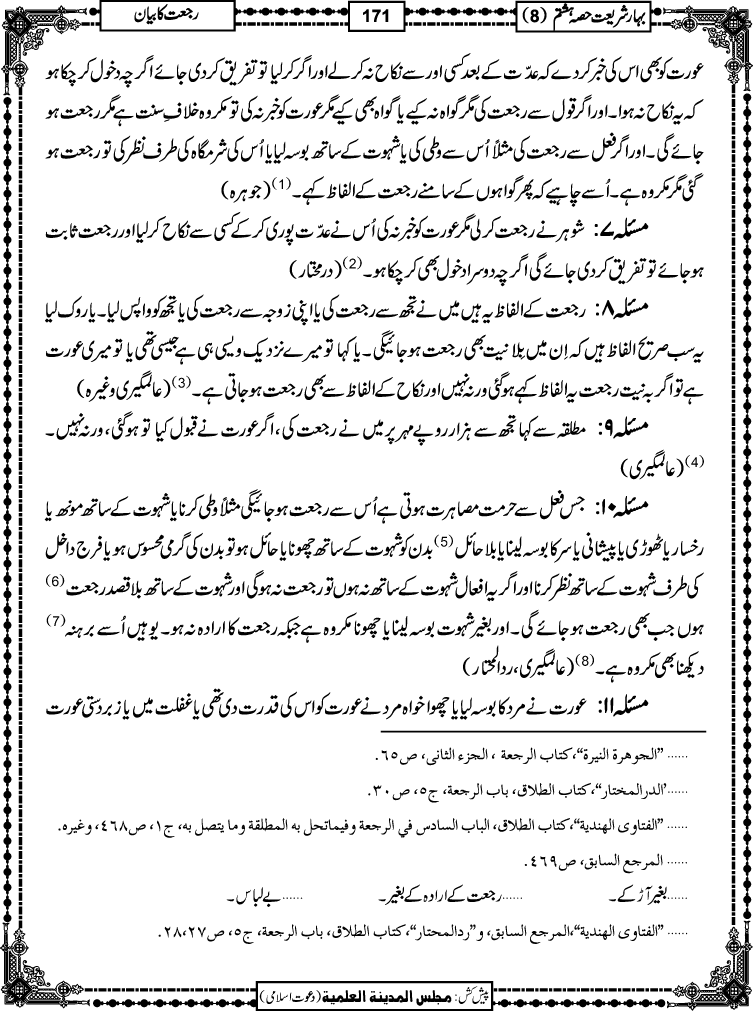 بہارِ شریعت حصہ ہشتم (8)
171
رجعت کا بیان
عورت کو بھی اس کی خبر کردے کہ عدّت کے بعد کسی اور سے نکاح نہ کرلے اور اگر کرلیا تو تفریق کردی جائے اگرچہ دخول کرچکا ہو
کہ یہ نکاح نہ ہوا۔ اور اگر قول سے رجعت کی مگر گواہ نہ کیے یا گواہ بھی کیے مگر عورت کو خبر نہ کی تو مکروہ خلافِ سنت ہے مگر رجعت ہو
جائے گی۔ اور اگر فعل سے رجعت کی مثلاً اُس سے وطی کی یا شہوت کے ساتھ بوسہ لیا یا اُس کی شرمگاہ کی طرف نظر کی تو رجعت ہو
گئی مگر مکروہ ہے۔ اُسے چاہیے کہ پھر گواہوں کے سامنے رجعت کے الفاظ کہے۔(1) (جوہرہ)
مسئلہ ۷: شوہر نے رجعت کرلی مگر عورت کو خبر نہ کی اُس نے عدّت پوری کرکے کسی سے نکاح کرلیا اور رجعت ثابت
ہوجائے تو تفریق کردی جائے گی اگرچہ دوسرا دخول بھی کرچکا ہو۔(2) (درمختار)
مسئلہ ۸: رجعت کے الفاظ یہ ہیں میں نے تجھ سے رجعت کی یا اپنی زوجہ سے رجعت کی یا تجھ کو واپس لیا۔ یا روک لیا
یہ سب صریح الفاظ ہیں کہ اِن میں بلا نیت بھی رجعت ہوجائیگی۔ یا کہا تو میرے نزدیک ویسی ہی ہے جیسی تھی یا تو میری عورت
ہے تو اگر بہ نیت رجعت یہ الفاظ کہے ہوگئی ورنہ نہیں اور نکاح کے الفاظ سے بھی رجعت ہوجاتی ہے۔(3) (عالمگیری وغیرہ)
مسئلہ ۹: مطلقہ سے کہا تجھ سے ہزار روپے مہر پر میں نے رجعت کی، اگر عورت نے قبول کیا تو ہوگئی، ورنہ نہیں۔
(4) (عالمگیری)
مسئلہ ۱۰: جس فعل سے حرمت مصاہرت ہوتی ہے اُس سے رجعت ہوجائیگی مثلاً وطی کرنا یا شہوت کے ساتھ مونھ یا
رخسار یا ٹھوڑی یا پیشانی یا سر کا بوسہ لینا یا بلا حائل (5) بدن کو شہوت کے ساتھ چھونا یا حائل ہو تو بدن کی گرمی محسوس ہو یا فرج داخل
کی طرف شہوت کے ساتھ نظر کرنا اور اگر یہ افعال شہوت کے ساتھ نہ ہوں تو رجعت نہ ہوگی اور شہوت کے ساتھ بلا قصد رجعت (6)
ہوں جب بھی رجعت ہوجائے گی۔ اور بغیر شہوت بوسہ لینا یا چھونا مکروہ ہے جبکہ رجعت کا ارادہ نہ ہو۔ یوہیں اُسے برہنہ (7)
دیکھنا بھی مکروہ ہے۔(8) (عالمگیری، ردالمحتار)
مسئلہ ۱۱: عورت نے مرد کا بوسہ لیا یا چھوا خواہ مرد نے عورت کو اس کی قدرت دی تھی یا غفلت میں یا زبردستی عورت
...... ”الجوهرة النيرة“،كتاب الرجعة ، الجزء الثانى، ص٦٥.
......’الدرالمختار“،كتاب الطلاق، باب الرجعة، ج٥، ص٣٠.
...... ”الفتاوى الهندية“،كتاب الطلاق، الباب السادس في الرجعة وفيماتحل به المطلقة وما يتصل به، ج١، ص٤٦٨، وغيره.
...... المرجع السابق، ص٤٦٩.
......بغیر آڑ کے۔ ......رجعت کے ارادہ کے بغیر۔ ......بے لباس۔
...... ”الفتاوى الهندية“،المرجع السابق، و”ردالمحتار“،كتاب الطلاق، باب الرجعة، ج٥، ص٢٧،٢٨.
پیش کش: مجلس المدینة العلمیة (دعوت اسلامی)